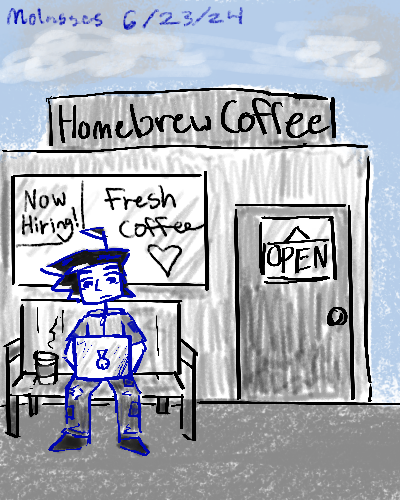 Molasses 6/23/24
Homebrew Coffee
Now
Hiring!
Fresh
Coffee
OPEN